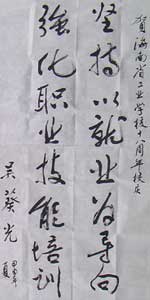 贺海南省工业学校十周年校庆
坚持以就业为导向
强化职业技能培训
吴葵光
夏